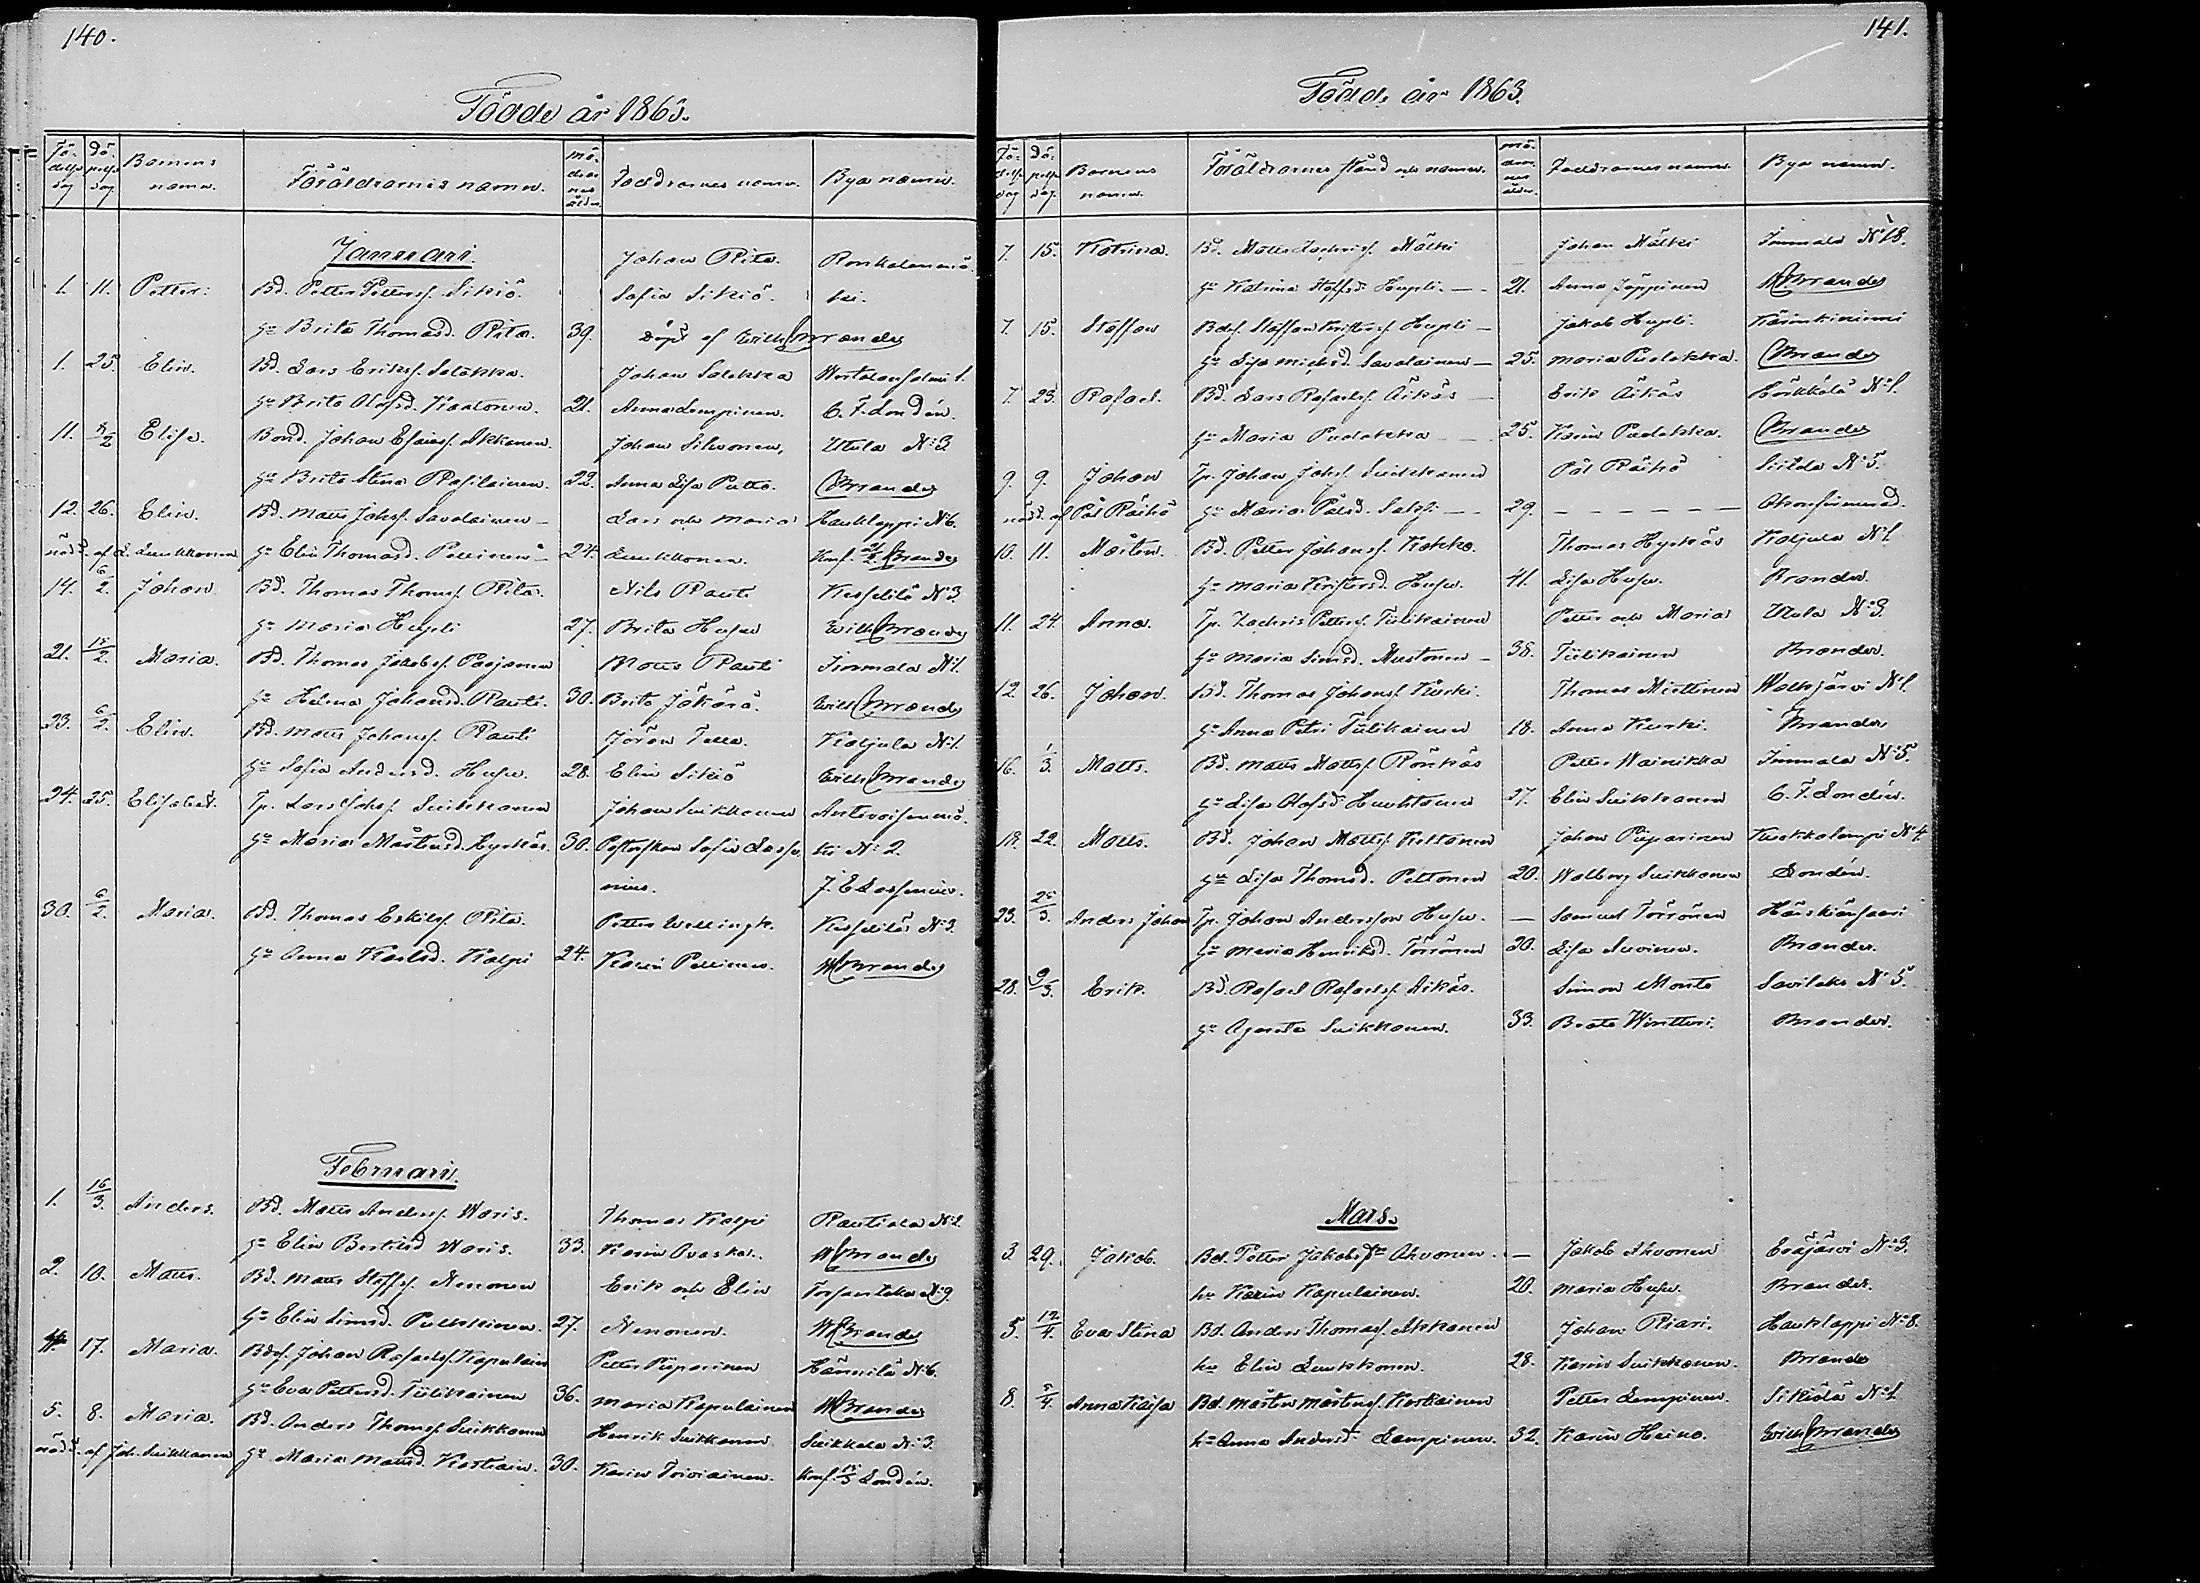 140.
Födde år 1863.
Födelse dag Döpelse dag Barnens namn. Föräldrarnes namn. Mödrarnes ålder. Faddrarnes namn. Bya namn.
Januari.
Johan Rita. Ronkalanmä
1. 11. Petter. Bd. Petter Petterss. Sikiö. Sofia Sikiö. ki.
Hu Brita Thomasd. Rita. 39. Döpt af Wilh Brander
1. 25. Elin. Bd. Lars Erikss. Salakka. Johan Salakka
Hu Brita Olofsd. Kaatonen. 21. Anna Lempinen. C. F. Londén.
11. 8/2 Elisa. Bond. Johan Esaiass. Akkanen. Johan Silvonen, Utula № 3
Hu Brita Stina Rasilainen. 22. Anna Lisa Putto. Brander
12. 26. Elin. Bd. Matts Johss. Savolainen Lars och Maria Hauklappi № 6.
nödd. af L. Luukkonen Hu Elin Thomasd. Pellinen 24. Luukkonen. Konf. Brander
14. 6/2. Johan Bd. Thomas Thomss. Rita. Nils Rauti Kesselilä № 3.
Hu Maria Hupli 27. Brita Husu Wilh Brander
21. 15/2. Maria. Bd. Thomas Jakobss. Paajanen Matts Rauti Immala № 1.
Hu Helena Johansd. Rauti. 30. Brita Jäkärä. Wilh Brander
23. 6/2. Elin. Bd. Matts Johanss. Rauti Jöran Tella. Kaljula № 1.
Hu Sofia Andersd. Husu. 28. Elin Sikiö Wilh Brander
24. 25. Elisabet. Tp. Lars Johss. Suikkanen Johan Suikkanen Anteroisenmä
Hu Maria Mårtensd. Hyrkäs. 30. Pastorskan Sofia Lasse ki № 2.
nius. J. E. Lassenius.
30. 6/2. Maria. Bd. Thomas Eskilss. Rita. Petter Wellingk. Kesselilä № 3.
Hu Anna Karlsd. Kalpi 24. Karin Pellinen. W Brander
Februari.
1. 16/3. Anders. Bd. Matts Anderss. Waris. Thomas Kalpi Rautiala № 2.
Hu Elin Bertilsd Waris. 33. Karin Avaska. W Brander
2. 10. Matts. Bd. Matts Staffss. Nenonen Erik och Elin Torsantaka № 9
Hu Elin Simsd. Pulkkinen. 27. Nenonen. W Brander
4. 17. Maria. Bdss. Johan Rafaelss. Kapulain Petter Piiparinen Hännilä № 6.
Hu Eva Pettersd. Tiilikainen 36. Maria Kapulainen W Brander
5. 8. Maria. Bd. Anders Thomss. Suikkanen Henrik Suikkanen. Suikkala № 3.
nödd. af Joh. Suikkanen Hu Maria Mattsd. Kostiain. 30. Karin Toiviainen. Konf. Londén.
141.
Födde år 1863.
Födelse dag Döpelse dag. Barnens namn. Föräldrarnes stånd och namn. Mödrarnes ålder. Faddrarnes namn. Bya namn.
7. 15. Katrina. Bd. Matts Zachriss. Mälki Johan Mälki Immala № 18.
Hu Katrina Staffsd. Hupli. — 21. Anna Jäppinen W Brander
7. 15. Staffan Bdss. Staffan Kristerss. Hupli — Jakob Hupli. Käinkiniemi
Hu Lisa Michsd. Savolainen — 25. Maria Pudakka. Brander
7. 23. Rafael. Bd. Lars Rafaelss. Äikäs — Erik Äikäs Härskälä № 1.
Hu Maria Pudakka — 25. Karin Pudakka. Brander
9. 9. Johan Tp. Johan Johss. Suikkanen Pål Räihä Siitola № 5.
nödd. af Pål Räihä Hu Maria Pålsd. — 29. — — — — — Okonfirmerad.
10. 11. Mårten. Bd. Petter Johanss. Kokko. Thomas Hyrkäs Kaljula № 1
Hu Maria Kristersd. Husu. 41. Lisa Husu. Brander.
11. 24. Anna. Tp. Zachris Petterss. Tiilikainen Petter och Maria Utula № 3.
Hu Maria Simsd. Mustonen — 38. Tiilikainen Brander.
12. 26. Johan. Bd. Thomas Johanss. Kurki. Thomas Miettinen Walkjärvi № 1.
Hu Anna Petri Tiilikainen 18. Anna Kurki. Brander
16. 1/3. Matts. Bd. Matts Mattss. Rönkäs Petter Wainikka Immala № 5.
Hu Lisa Olofsd. Huuhtanen 27. Elin Suikkanen C. F. Londén.
18. 22. Matts. Bd. Johan Mattss. Kiltonen Johan Piiparinen Kuokkalampi № 4.
Hu Lisa Thomsd. Peltonen 20. Walborg Suikkanen Londén.
23. 25/3. Anders Johan Tp. Johan Andersson Husu. — Samuel Torrönen Härskiänsaari
Hu Maria Henriksd. Törrönen 20. Lisa Brander.
28. 9/3. Erik. Bd. Rafael Rafaelss. Äikäs. Simon Monto Savilaks № 5.
Hu Agneta Suikkanen. 33. Beata Wirtteri. Brander.
Mars.
3 29. Jakob. Bd. Petter Jakobsson Ahvonen. — Jakob Ahvonen Eräjärvi № 3.
hu Karin Kapulainen. 20. Maria Husu. Brander.
5. 12/4. Eva Stina Bd. Anders Thomass. Akkanen Johan Riari. Hauklappi № 8.
hu Elin Luukkonen. 28. Karin Suikkanen. Brander
8. 5/4. Anna Kaisa Bd. Mårten Mårtenss. Kostiainen Petter Lempinen. Sikiälä № 1.
hu Anna Andersd. Lempinen. 32. Karin Heino. Wilh Brander